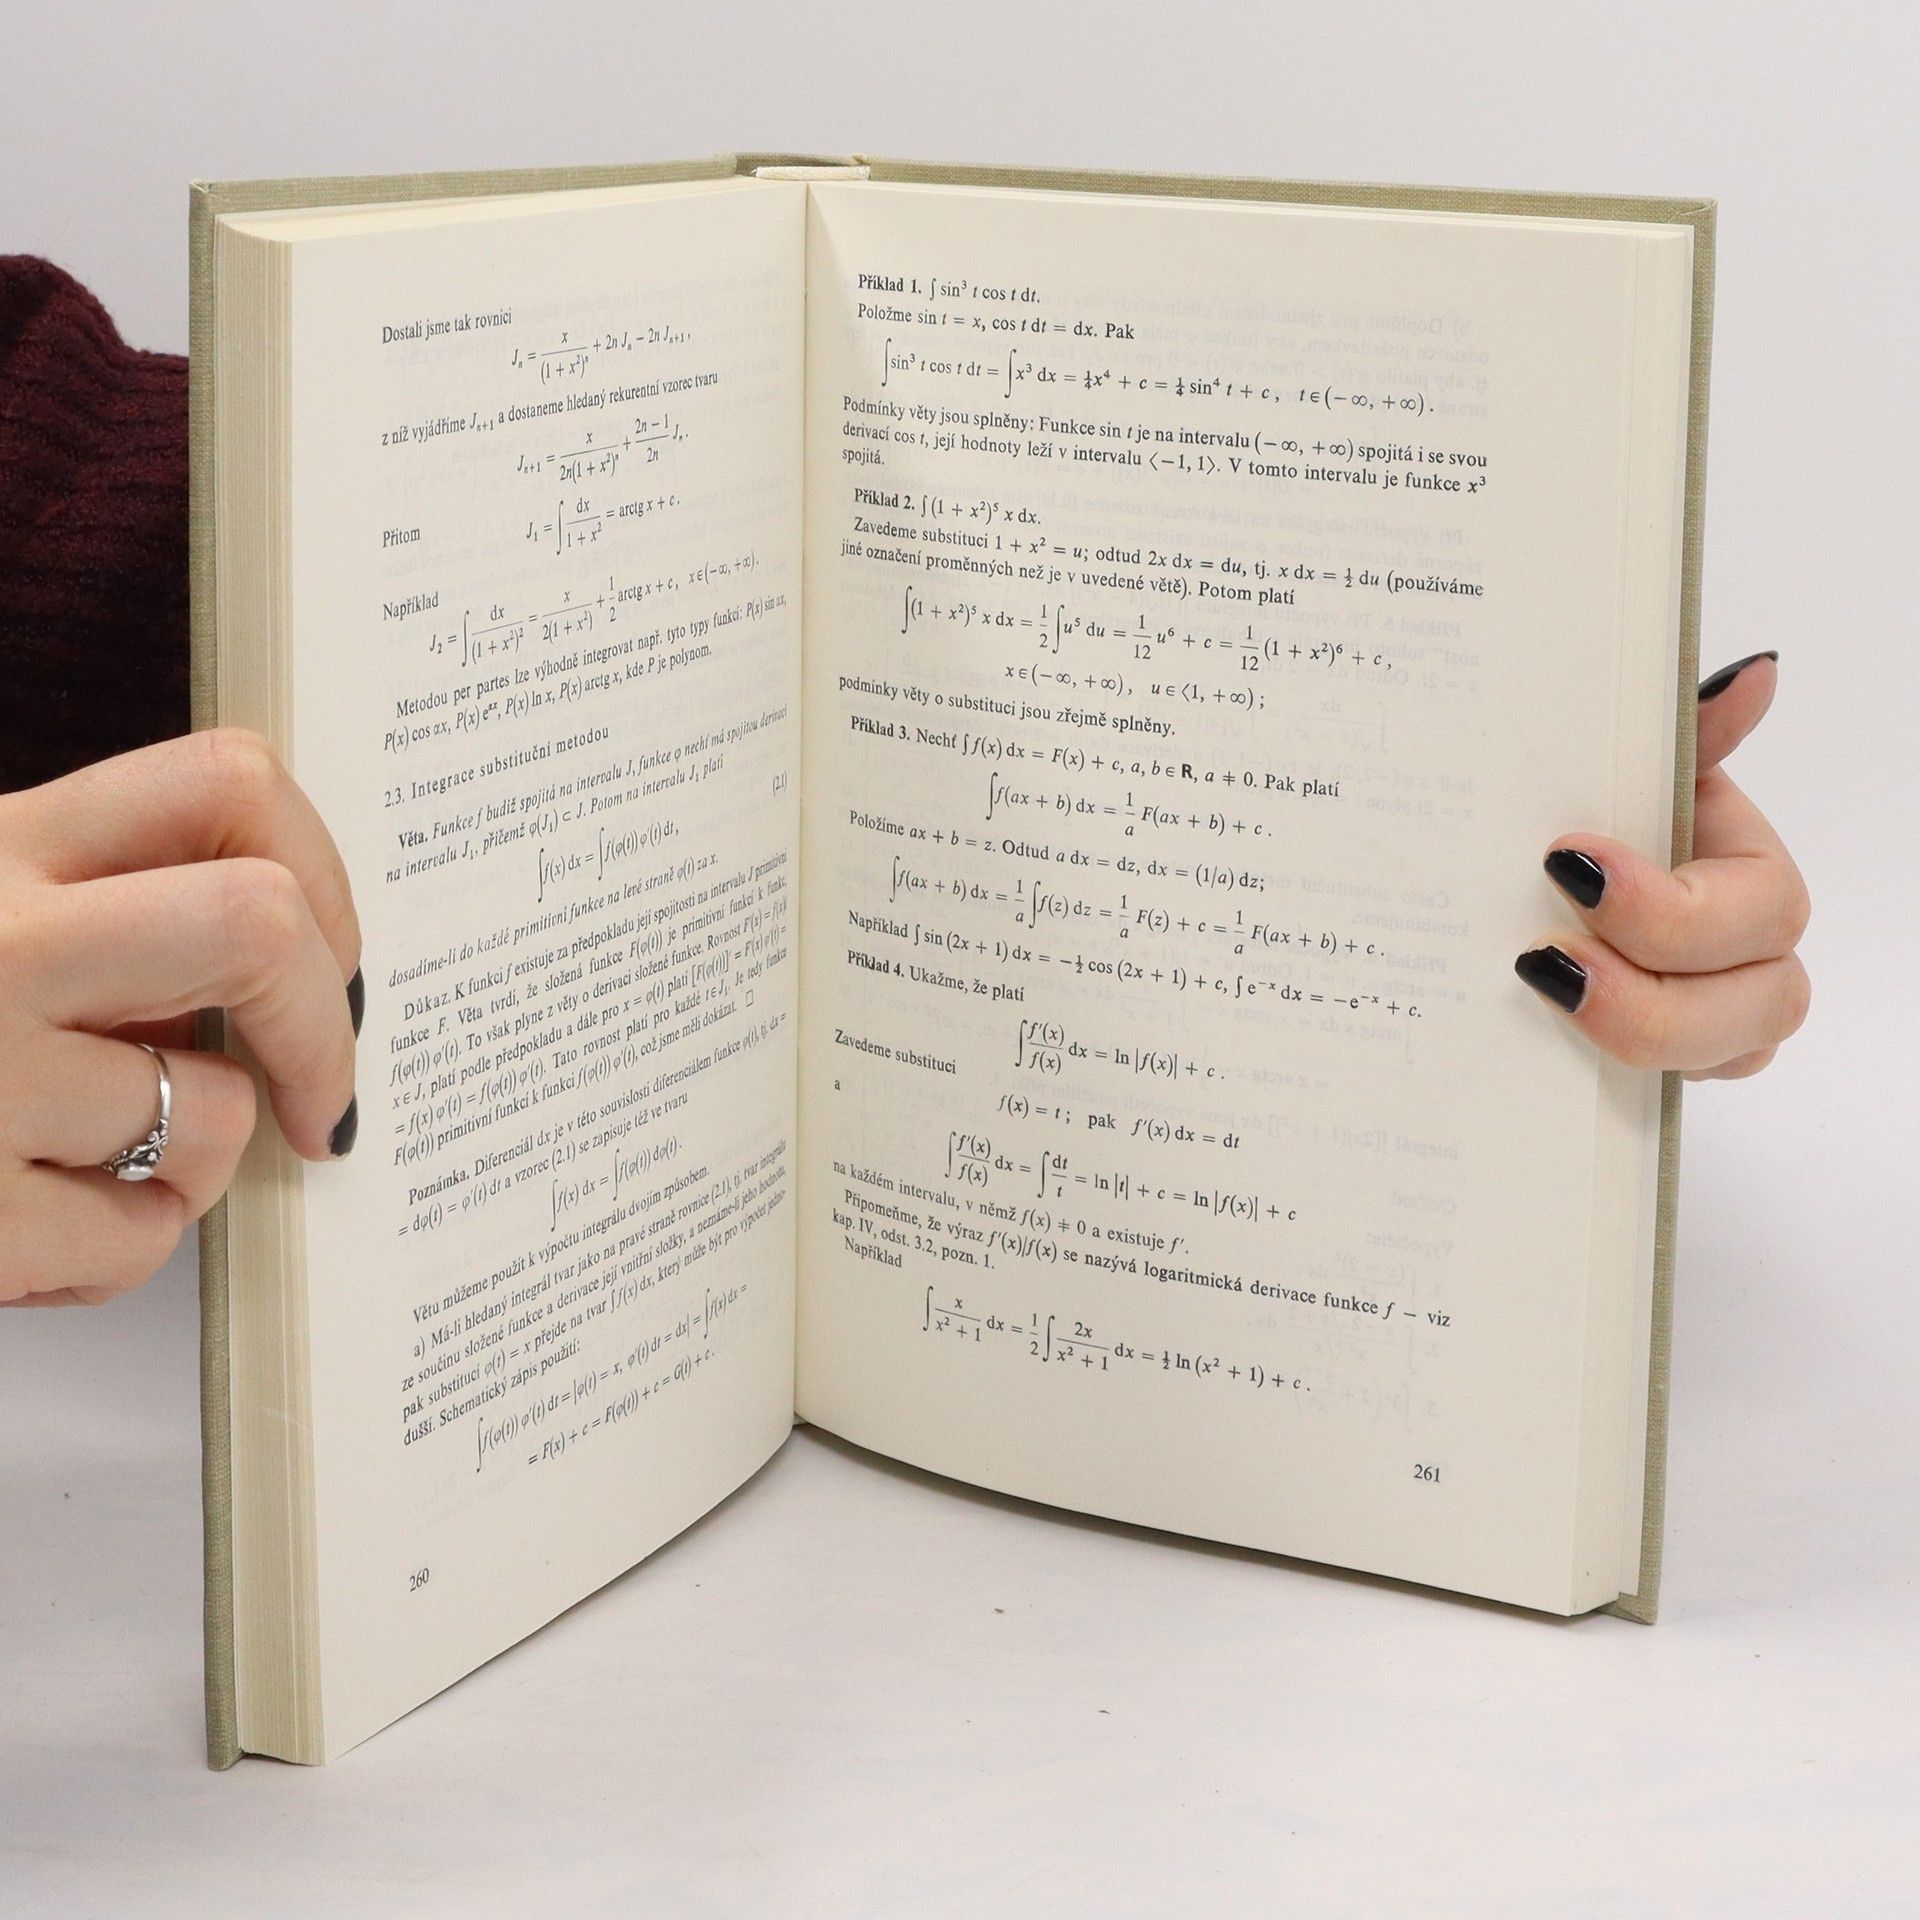 Dostali jsme tak rovnici
Jₙ = x/(1 + x²)ⁿ + 2n Jₙ − 2n Jₙ₊₁,
z níž vyjádříme Jₙ₊₁ a dostaneme hledaný rekurentní vzorec tvaru
Jₙ₊₁ = x/(2n(1 + x²)ⁿ) + (2n − 1)/(2n) Jₙ.
Přitom J₁ = ∫ dx/(1 + x²) = arctg x + c.
Například
J₂ = ∫ dx/(1 + x²)² = x/(2(1 + x²)) + 1/2 arctg x + c, x ∈ (−∞, +∞).
Metodou per partes lze výhodně integrovat např. tyto typy funkcí: P(x) sin αx,
P(x) cos αx, P(x) e^{αx}, P(x) ln x, P(x) arctg x, kde P je polynom.
2.3. Integrace substituční metodou
Věta. Funkce f budiž spojitá na intervalu J, funkce φ nechť má spojitou derivaci
na intervalu J₁, přičemž φ(J₁) ⊂ J. Potom na intervalu J₁ platí
∫ f(x) dx = ∫ f(φ(t)) φ′(t) dt, (2.1)
dosadíme-li do každé primitivní funkce na levé straně φ(t) za x.
Důkaz. K funkci f existuje za předpokladu její spojitosti na intervalu J primitivní
funkce F. Věta tvrdí, že složená funkce F(φ(t)) je primitivní funkcí k funkci
f(φ(t)) φ′(t). To však plyne z věty o derivaci složené funkce. Rovnost F′(x) = f(x),
x ∈ J, platí podle předpokladu a dále pro x = φ(t) platí [F(φ(t))]′ = F′(x) φ′(t) =
= f(x) φ′(t) = f(φ(t)) φ′(t). Tato rovnost platí pro každé t ∈ J₁. Je tedy funkce
F(φ(t)) primitivní funkcí k funkci f(φ(t)) φ′(t), což jsme měli dokázat. □
Poznámka. Diferenciál dx je v této souvislosti diferenciálem funkce φ(t), tj. dx =
= dφ(t) = φ′(t) dt a vzorec (2.1) se zapisuje též ve tvaru
∫ f(x) dx = ∫ f(φ(t)) dφ(t).
Větu můžeme použít k výpočtu integrálu dvojím způsobem.
a) Má-li hledaný integrál tvar jako na pravé straně rovnice (2.1), tj. tvar integrálu
ze součinu složené funkce a derivace její vnitřní složky, a neznáme-li jeho hodnotu,
pak substitucí φ(t) = x přejde na tvar ∫ f(x) dx, který může být pro výpočet jedno-
dušší. Schematický zápis použití:
∫ f(φ(t)) φ′(t) dt = |φ(t) = x, φ′(t) dt = dx| = ∫ f(x) dx =
= F(x) + c = F(φ(t)) + c = G(t) + c.
260
Příklad 1. ∫ sin³ t cos t dt.
Položme sin t = x, cos t dt = dx. Pak
∫ sin³ t cos t dt = ∫ x³ dx = ¼x⁴ + c = ¼ sin⁴ t + c, t ∈ (−∞, +∞).
Podmínky věty jsou splněny: Funkce sin t je na intervalu (−∞, +∞) spojitá i se svou
derivací cos t, její hodnoty leží v intervalu ⟨−1, 1⟩. V tomto intervalu je funkce x³
spojitá.
Příklad 2. ∫ (1 + x²)⁵ x dx.
Zavedeme substituci 1 + x² = u; odtud 2x dx = du, tj. x dx = ½ du (používáme
jiné označení proměnných než je v uvedené větě). Potom platí
∫ (1 + x²)⁵ x dx = 1/2 ∫ u⁵ du = 1/12 u⁶ + c = 1/12 (1 + x²)⁶ + c,
x ∈ (−∞, +∞), u ∈ ⟨1, +∞);
podmínky věty o substituci jsou zřejmě splněny.
Příklad 3. Nechť ∫ f(x) dx = F(x) + c, a, b ∈ R, a ≠ 0. Pak platí
∫ f(ax + b) dx = 1/a F(ax + b) + c.
Položíme ax + b = z. Odtud a dx = dz, dx = (1/a) dz;
∫ f(ax + b) dx = 1/a ∫ f(z) dz = 1/a F(z) + c = 1/a F(ax + b) + c.
Například ∫ sin (2x + 1) dx = −½ cos (2x + 1) + c, ∫ e⁻ˣ dx = −e⁻ˣ + c.
Příklad 4. Ukažme, že platí
∫ f′(x)/f(x) dx = ln |f(x)| + c.
Zavedeme substituci
f(x) = t; pak f′(x) dx = dt
a
∫ f′(x)/f(x) dx = ∫ dt/t = ln |t| + c = ln |f(x)| + c
na každém intervalu, v němž f(x) ≠ 0 a existuje f′.
Připomeňme, že výraz f′(x)/f(x) se nazývá logaritmická derivace funkce f — viz
kap. IV, odst. 3.2, pozn. 1.
Například
∫ x/(x² + 1) dx = 1/2 ∫ 2x/(x² + 1) dx = ½ ln (x² + 1) + c.
261